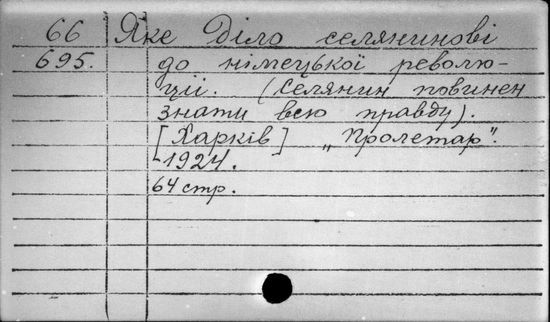 66 Яке Діло селянинові
695. до німецької револю-
ції. (Селянин повинен
знати всю правду).
[Харків] „Пролетар".
1924.
64 стр.